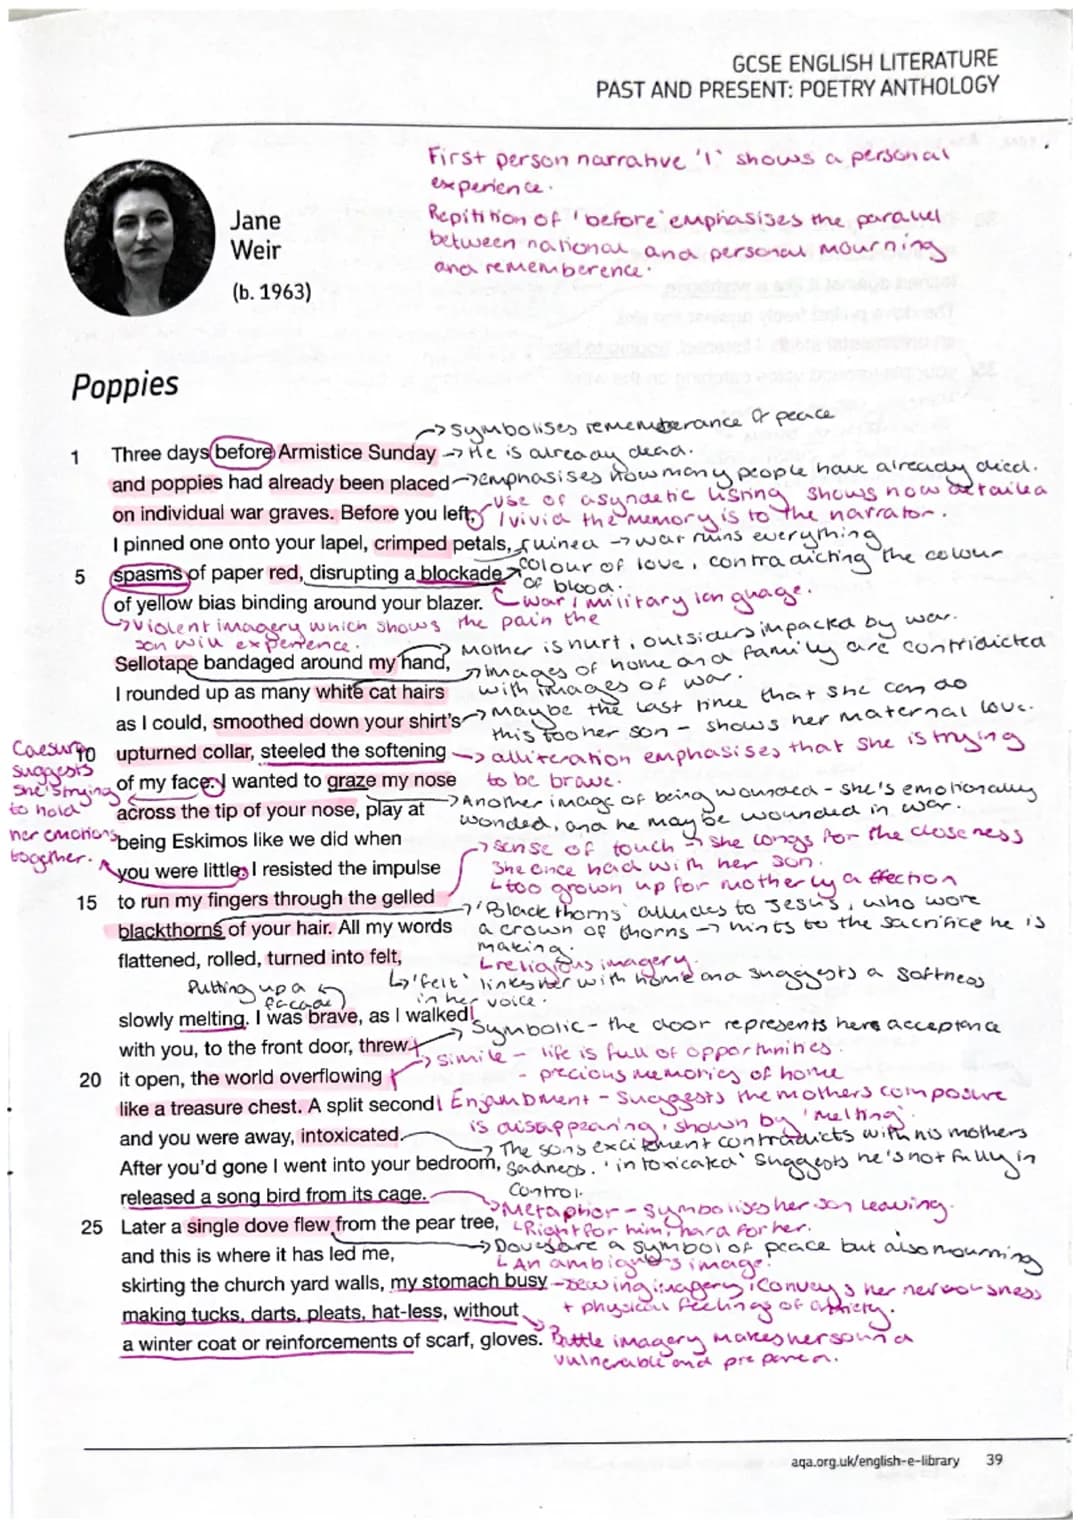 GCSE ENGLISH LITERATURE
PAST AND PRESENT: POETRY ANTHOLOGY
First person narrative 'I' shows a personal
experience.
Repitition of 'before' emphasises the parallel
between national and personal mourning
and rememberence.
Jane
Weir
(b. 1963)
Poppies
→ symbolises rememberance & peace
1 Three days before Armistice Sunday → He is already dead.
and poppies had already been placed → emphasises how many people have already died.
on individual war graves. Before you left, Use of asyndetic listing shows how detailed
/vivid the memory is to the narrator.
I pinned one onto your lapel, crimped petals, ruined → war ruins everything
5 spasms of paper red, disrupting a blockade colour of love, contradicting the colour
of blood.
of yellow bias binding around your blazer. war / military language.
→ violent imagery which shows the pain the
son will experience.
Mother is hurt, outsiders impacted by war.
Sellotape bandaged around my hand, → images of home and family are contridicted
with images of war.
I rounded up as many white cat hairs
as I could, smoothed down your shirt's → Maybe the last time that she can do
this to her son - shows her maternal love.
10 upturned collar, steeled the softening → alliteration emphasises that she is trying
to be brave.
Caesura
suggests
she's trying
to hold
her emotions
together.
of my face. I wanted to graze my nose
across the tip of your nose, play at → Another image of being wounded - she's emotionally
wonded, and he may be wounded in war.
being Eskimos like we did when
→ sense of touch → she longs for the closeness
she once had with her son.
you were little. I resisted the impulse
too grown up for motherly affection
15 to run my fingers through the gelled
→ 'Blackthorns' alludes to Jesus, who wore
blackthorns of your hair. All my words a crown of thorns → hints to the sacrifice he is
making.
flattened, rolled, turned into felt, religious imagery.
↳ 'felt' links her with home and suggests a softness
in her voice.
Putting up a
facade
slowly melting. I was brave, as I walked
→ Symbolic - the door represents her acceptance
with you, to the front door, threw
→ simile - life is full of opportunities.
- precious memories of home
20 it open, the world overflowing
like a treasure chest. A split second Enjambment - suggests the mothers composure
is disappearing, shown by 'melting'.
and you were away, intoxicated.
→ The sons excitement contradicts with his mothers
After you'd gone I went into your bedroom, sadness. 'intoxicated' suggests he's not fully in
control.
released a song bird from its cage.
→ Metaphor - symbolises her son leaving.
25 Later a single dove flew from the pear tree, Right for him, hard for her.
→ Doves are a symbol of peace but also mourning
and this is where it has led me, An image.
skirting the church yard walls, my stomach busy → sewing imagery, conveys her nervousness
+ physical feelings of anxiety.
making tucks, darts, pleats, hat-less, without
a winter coat or reinforcements of scarf, gloves. Battle imagery makes her sound
vulnerable and
aqa.org.uk/english-e-library 39